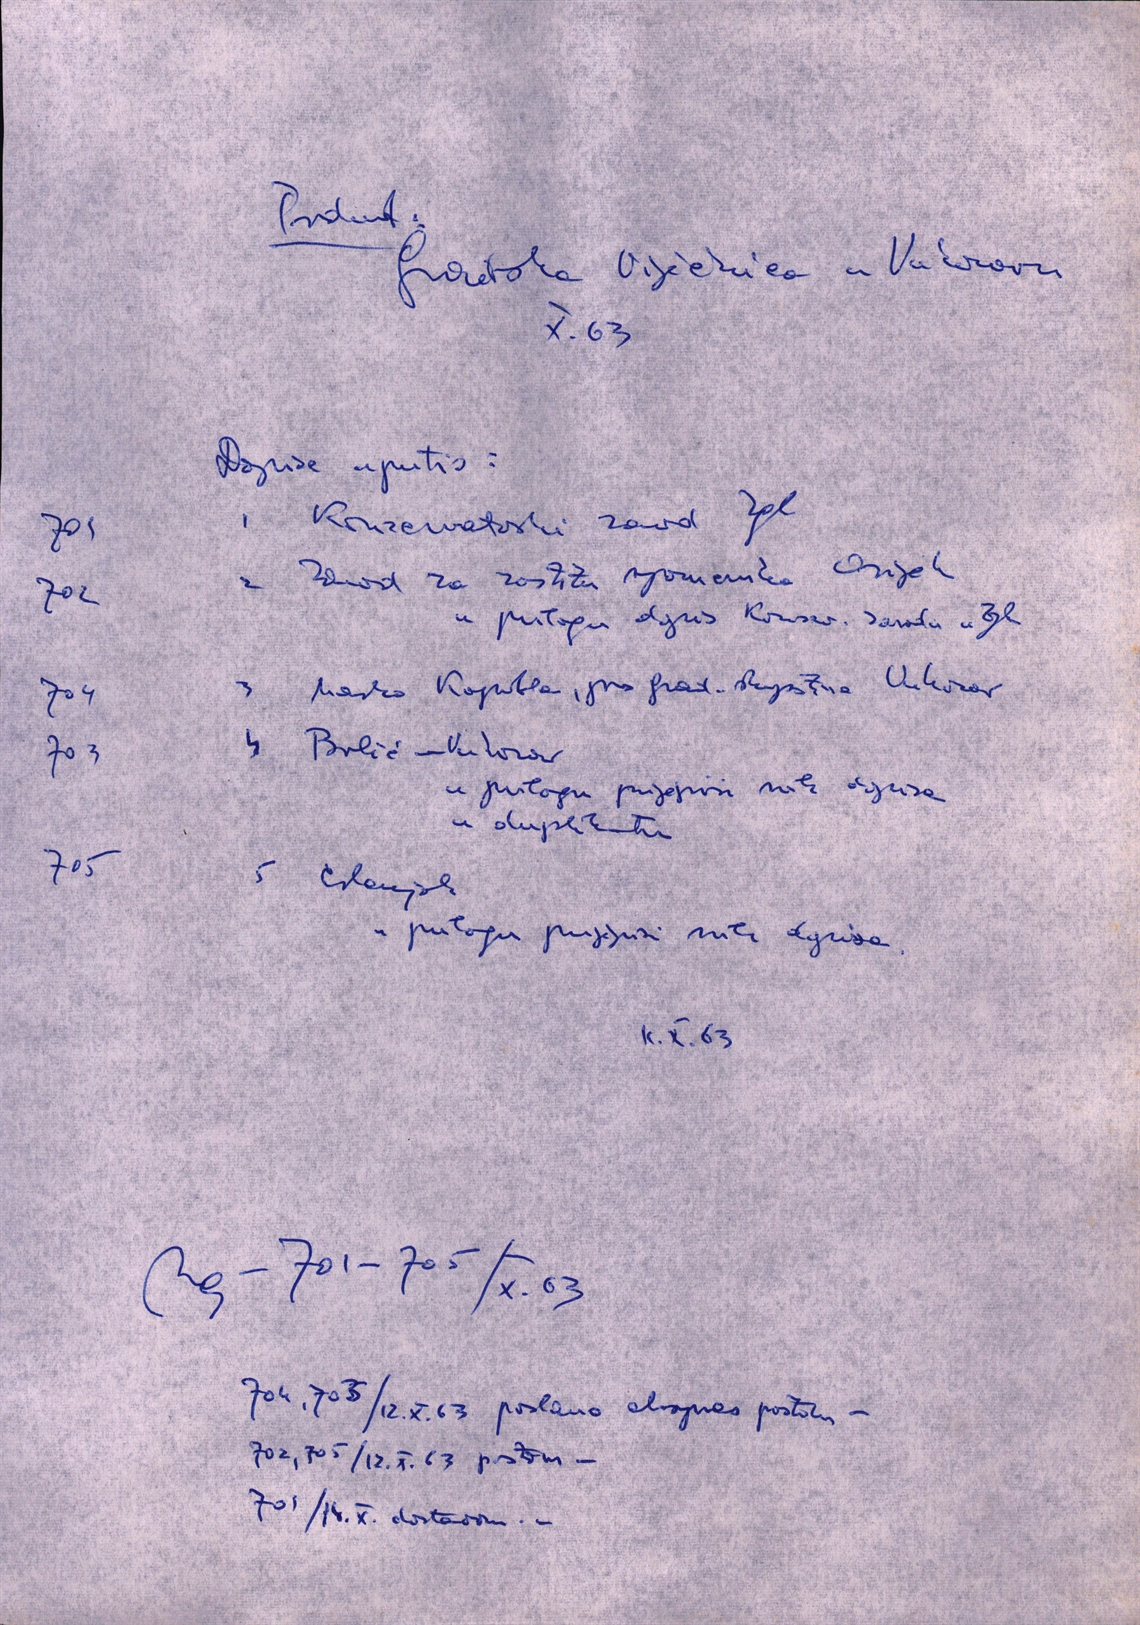 Predmet:
Gradska Vijećnica u Vukovaru
X. 63
Dopise uputio:
701 1 Konzervatorski zavod Zgb
702 2 Zavod za zaštitu spomenika Osijek
u prilogu dopis Konzerv. zavodu u Zgb
704 3 Marko Kopribla, pro grad. skupština Vukovar
703 4 Brlić – Vukovar
u prilogu prijepisi svih dopisa
u duplikatu
705 5
u prilogu prijepisi svih dopisa.
X. 63
– 701 – 705 / X. 63
704, 703 / 12. X. 63 poslano ekspres poštom –
702, 705 / 12. X. 63 poštom –
701 / 14. X. dostavom. –